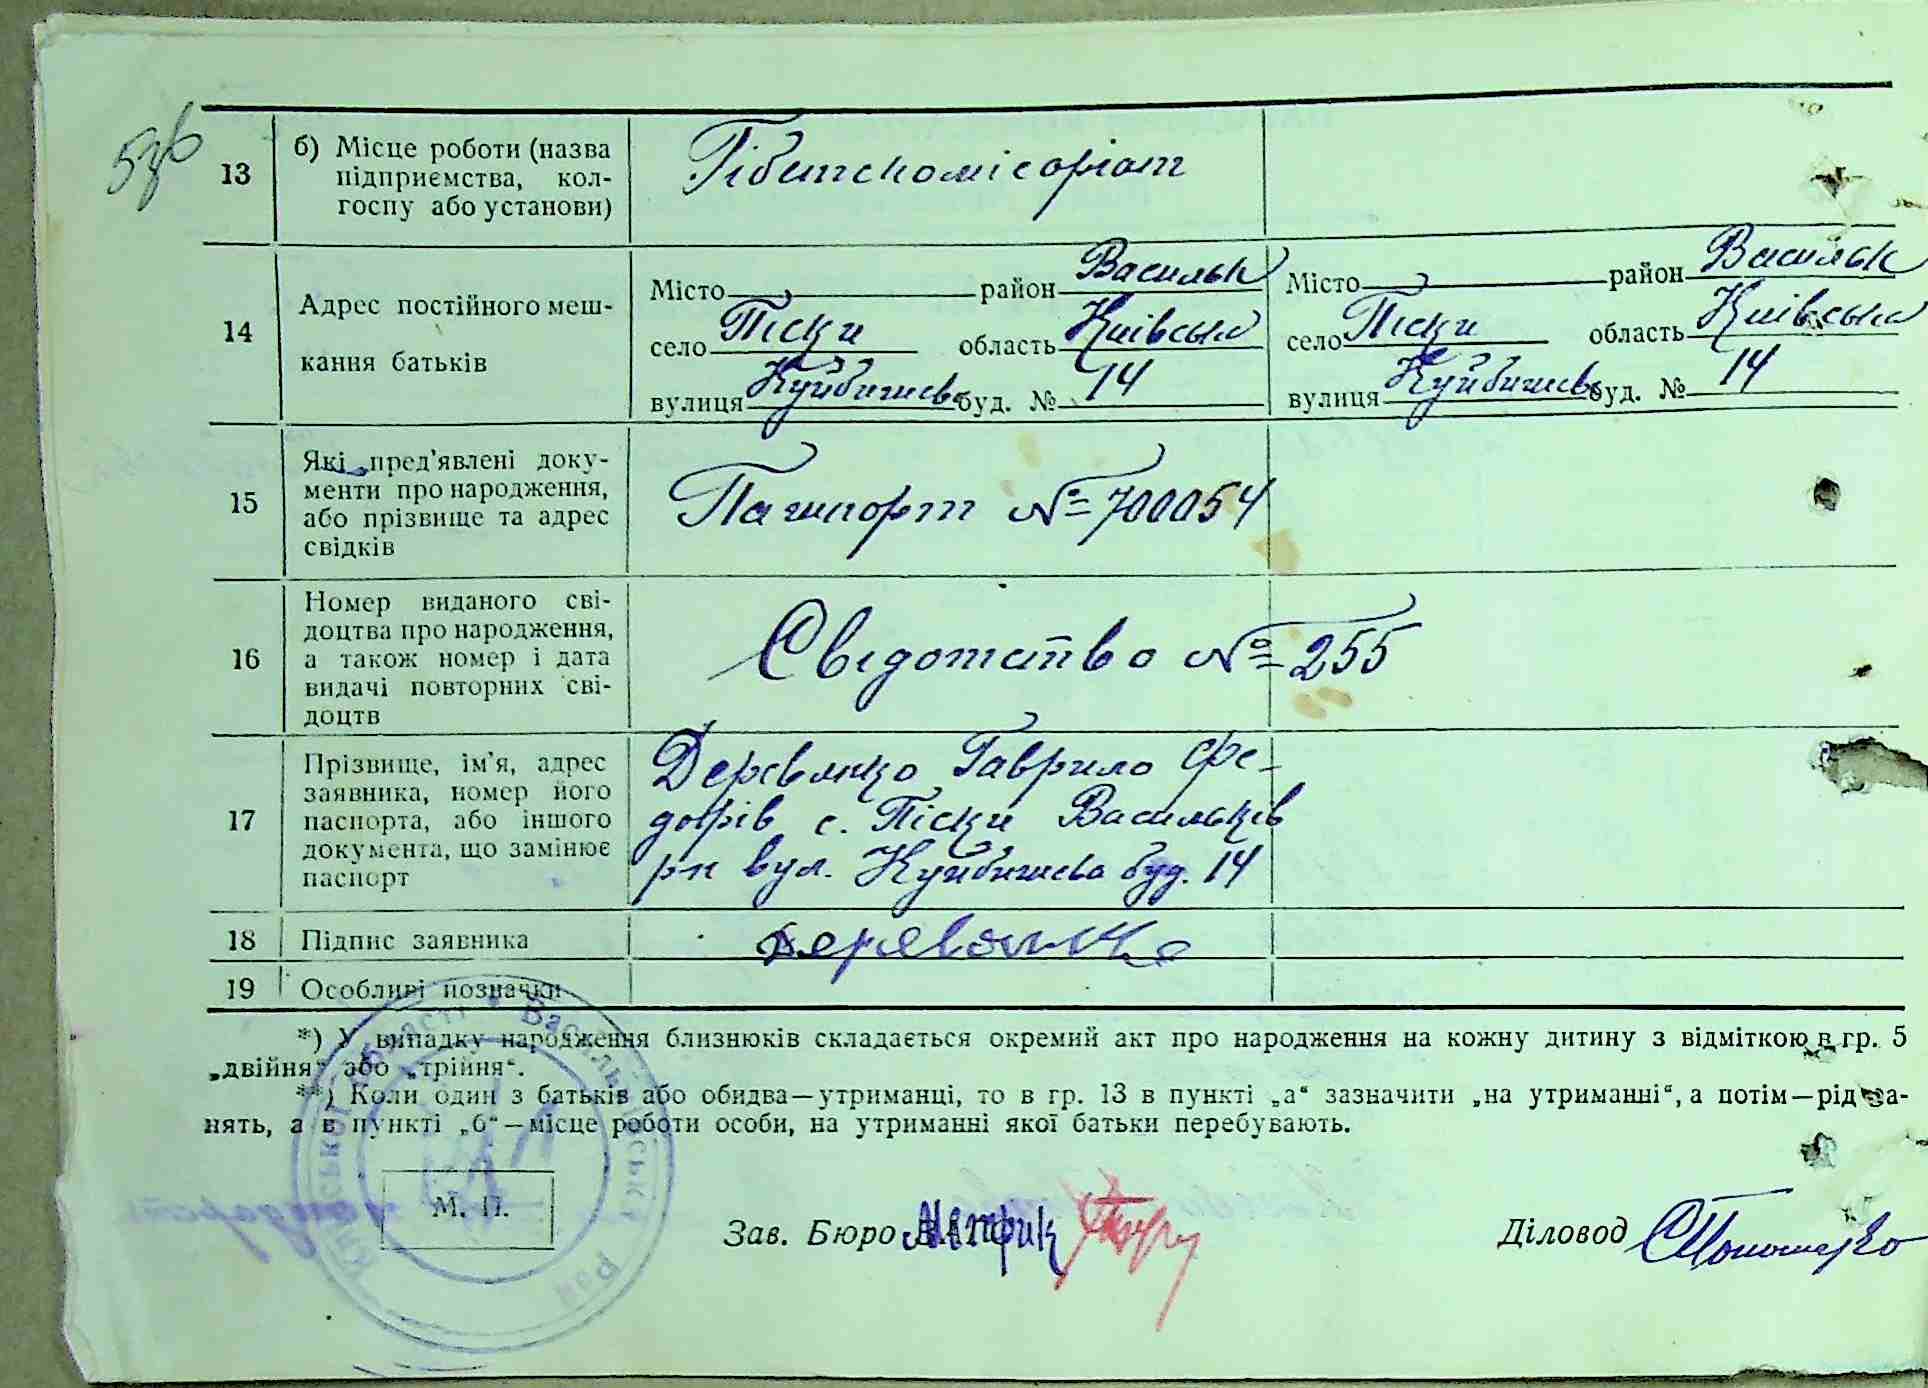 13
б) Місце роботи (назва
підприємства, кол-
госпу або установи)
14
Адрес постійного меш-
кання батьків
Місто район Васильк
село Піски область Київська
вулиця Куйбишева буд. № 14
Місто район Васильк
село Піски область Київська
вулиця Куйбишева буд. № 14
15
Які пред'явлені доку-
менти про народження,
або прізвище та адрес
свідків
Пашпорт № 700054
16
Номер виданого сві-
доцтва про народження,
а також номер і дата
видачі повторних сві-
доцтв
Свідотство № 255
17
Прізвище, ім'я, адрес
заявника, номер його
паспорта, або іншого
документа, що замінює
паспорт
Деревянко Гаврило Фе-
дорів с. Піски Васильків
рн вул. Куйбишева буд. 14
18
Підпис заявника
19
Особливі позначки
*) У випадку народження близнюків складається окремий акт про народження на кожну дитину з відміткою в гр. 5
„двійня“ або „трійня“.
**) Коли один з батьків або обидва—утриманці, то в гр. 13 в пункті „а“ зазначити „на утриманні“, а потім—рід за-
нять, а в пункті „б“—місце роботи особи, на утриманні якої батьки перебувають.
М. П.
Зав. Бюро
Діловод